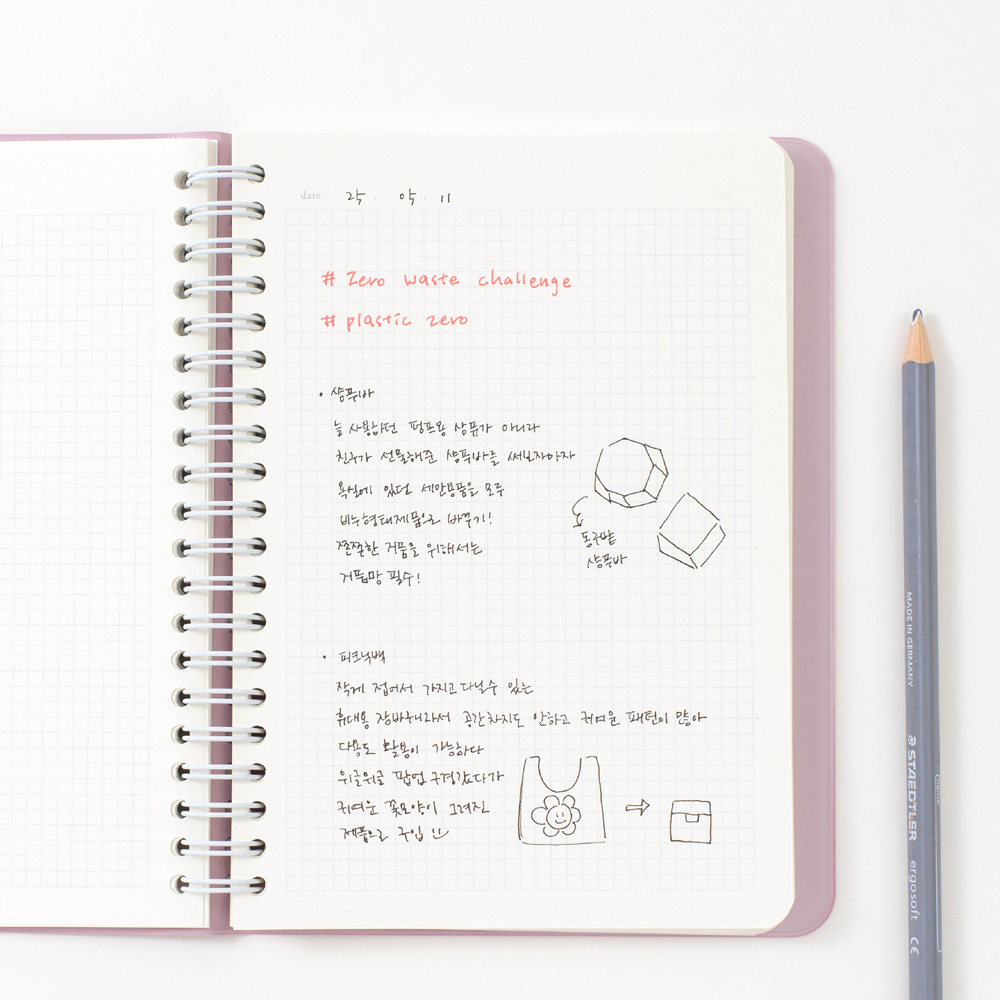 date.
# Zero waste challenge
# plastic zero
• 샴푸바
늘 사용하던 펌프용 샴퓨가 아니라
친구가 선물해준 샴푸바를 써보자아자
욕실에 있던 세안용품을 모두
비누형태제품으로 바꾸기!
쫀쫀한 거품을 위해서는
거품망 필수!
동구밭
샴푸바
• 피크닉백
작게 접어서 가지고 다닐수 있는
휴대용 장바구니라서 공간차지도 안하고 귀여운 패턴이 많아
다용도 활용이 가능하다
위글위글 팝업 구경갔다가
귀여운 꽃모양이 그려진
제품으로 구입
MADE IN GERMANY
STAEDTLER
ergosoft
CE